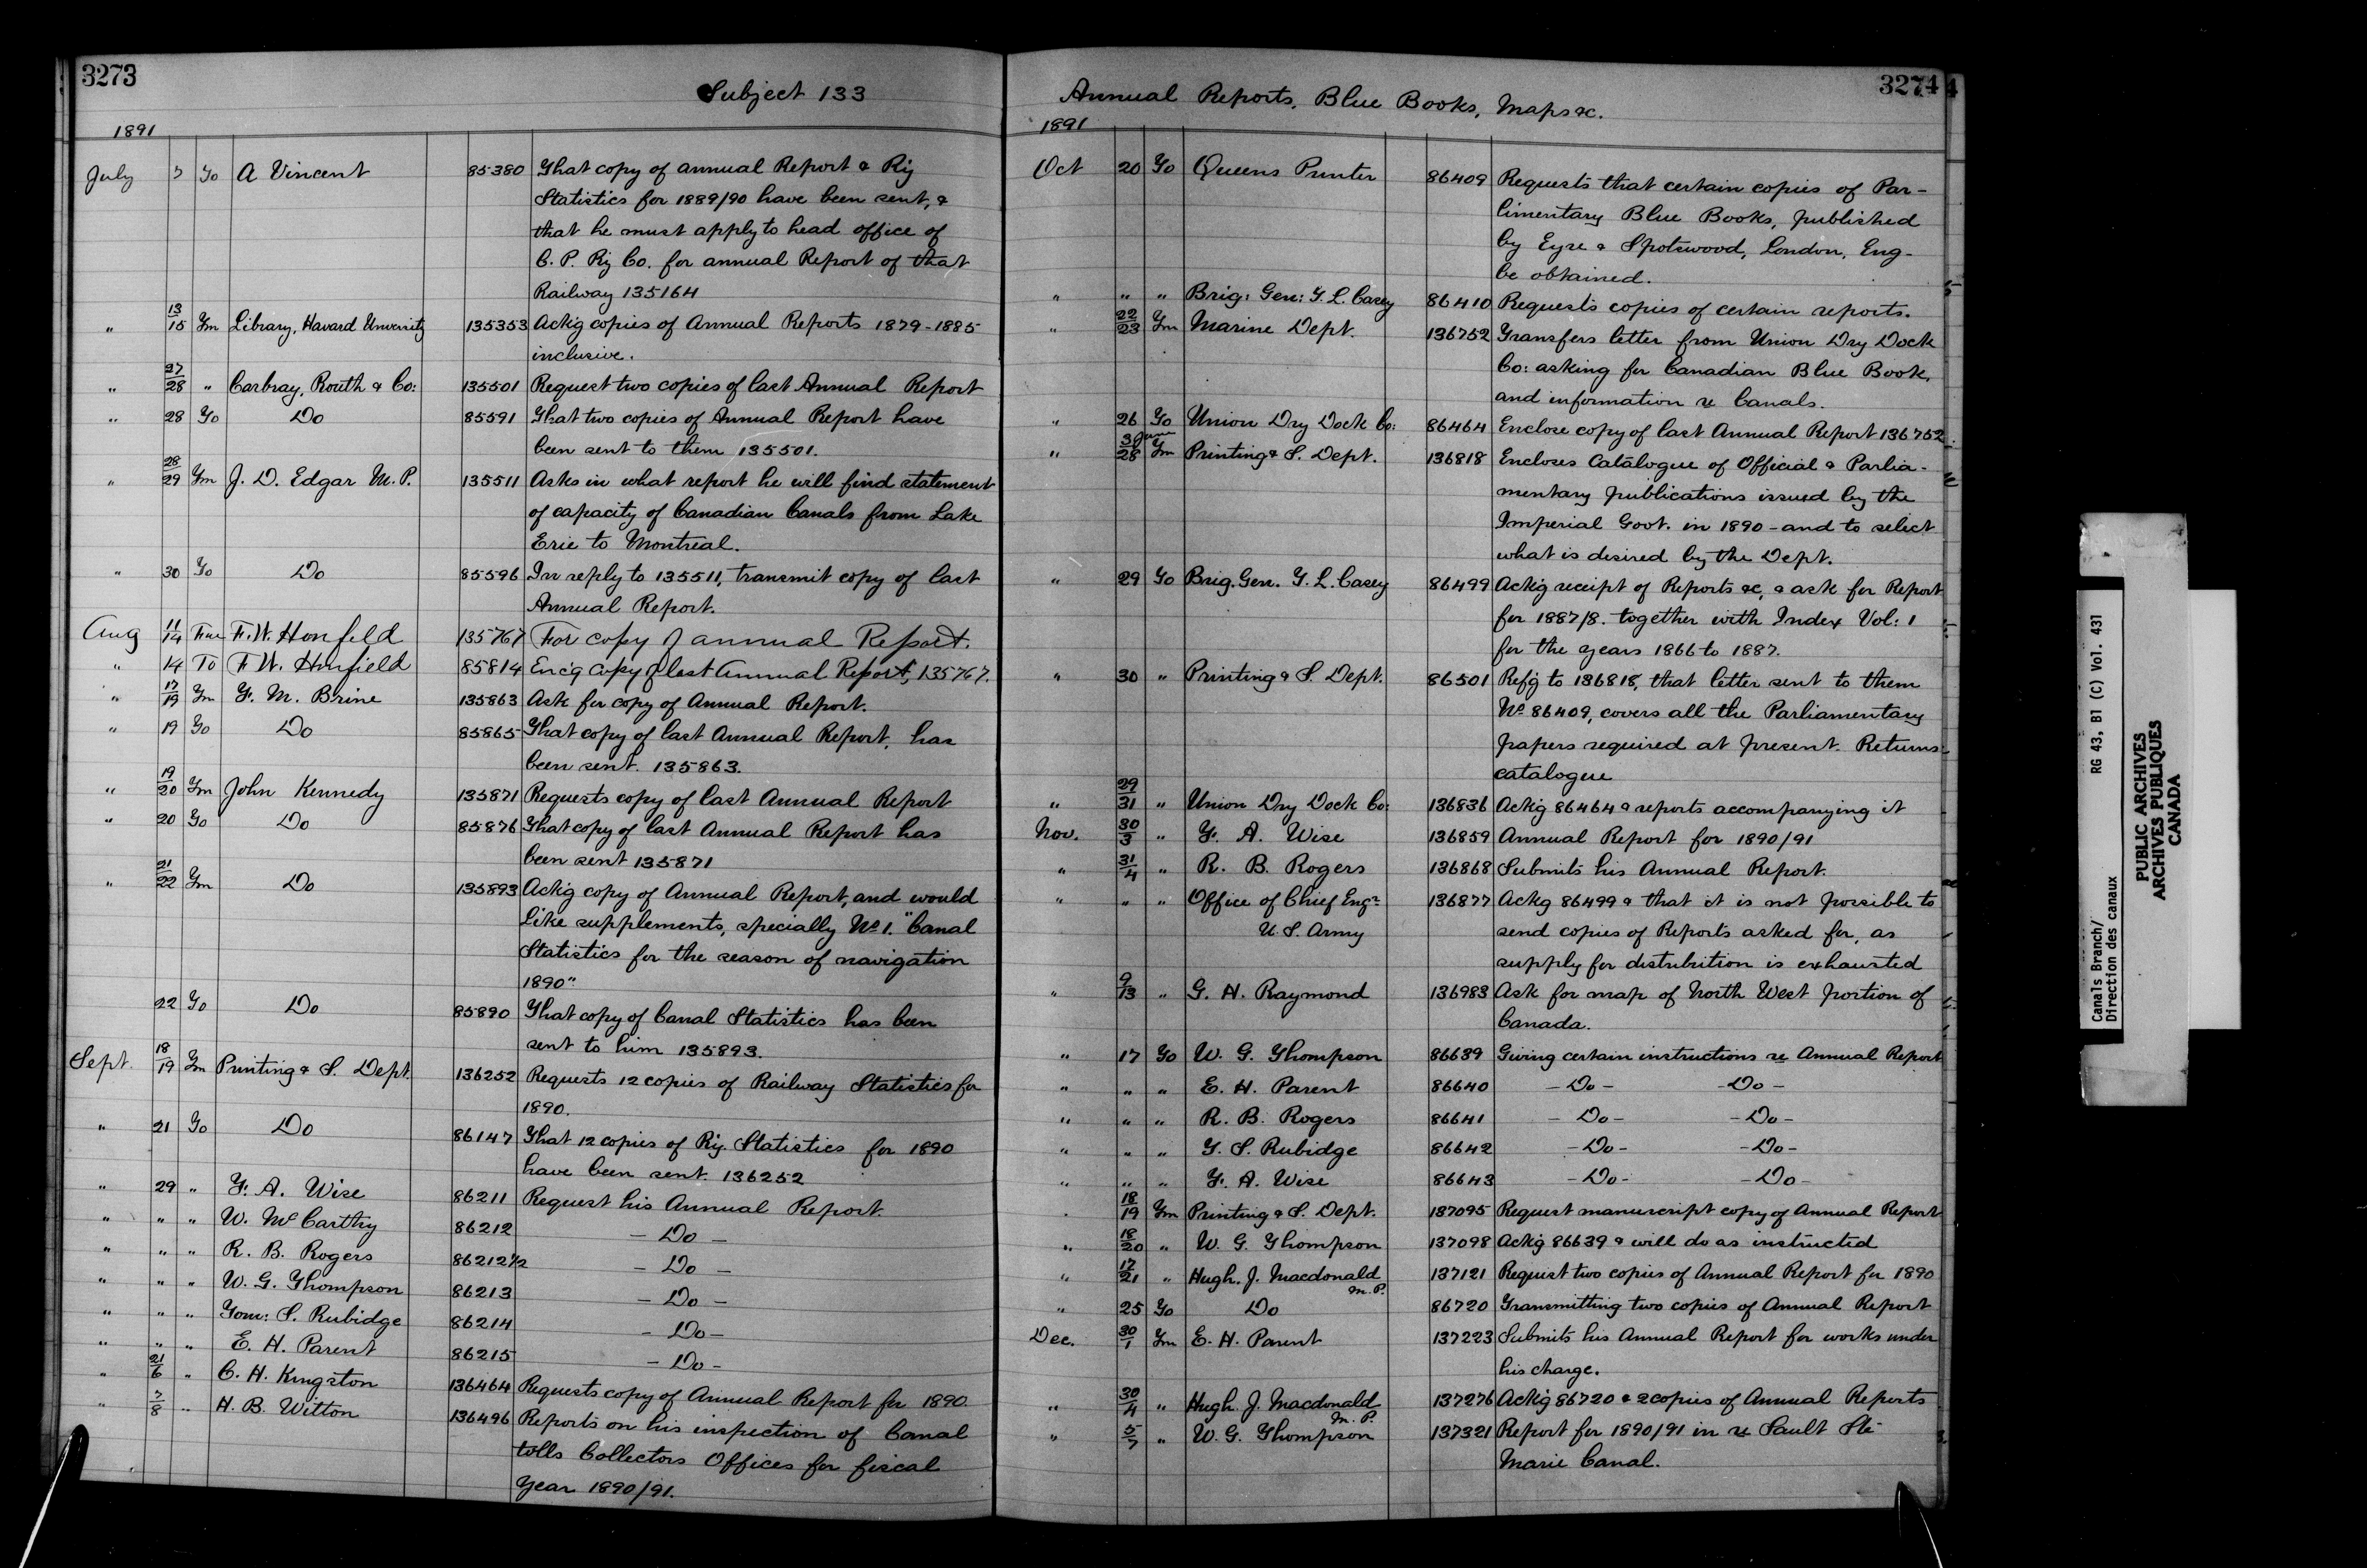 3273
Subject 133
1891
July 7 To A Vincent 85380 That copy of annual Report & Ry
Statistics for 1889/90 have been sent, &
that he must apply to head office of
C. P. Ry Co. for annual Report of that
Railway 135164
" 13/15 Fm Library, Havard University 135353 Ackg copies of Annual Reports 1879-1885
inclusive.
" 27/28 " Carbray, Routh & Co: 135501 Request two copies of last Annual Report
" 28 To Do 85591 That two copies of Annual Report have
been sent to them 135501.
" 28/29 Fm J. D. Edgar M. P. 135511 Asks in what report he will find statement
of capacity of Canadian Canals from Lake
Erie to Montreal.
" 30 To Do 85596 In reply to 135511, transmit copy of last
Annual Report.
Aug 11/14 Fm F. W. Honfeld 135767 For copy of annual Report.
" 14 To F. W. Honfield 85814 Enc'g copy of last Annual Report, 135767.
" 17/19 Fm F. M. Brine 135863 Ask for copy of Annual Report.
" 19 To Do 85865 That copy of last Annual Report, has
been sent. 135863.
" 19/20 Fm John Kennedy 135871 Requests copy of last Annual Report
" 20 To Do 85876 That copy of last Annual Report has
been sent 135871
" 21/22 Fm Do 135893 Ackg copy of Annual Report, and would
like supplements, specially No 1. "Canal
Statistics for the season of navigation
1890"
22 To Do 85890 That copy of Canal Statistics has been
sent to him 135893.
Sept. 18/19 Fm Printing & S. Dept. 136252 Requests 12 copies of Railway Statistics for
1890.
" 21 To Do 86147 That 12 copies of Ry. Statistics for 1890
have been sent. 136252
" 29 " F. A. Wise 86211 Request his Annual Report.
" " " W. McCarthy 86212 - Do -
" " " R. B. Rogers 86212 1/2 - Do -
" " " W. G. Thompson 86213 - Do -
" " " Tom: S. Rubidge 86214 - Do -
" " " E. H. Parent 86215 - Do -
" 21/6 " C. H. Kingston 136464 Requests copy of Annual Report for 1890
" 7/8 " H. B. Witton 136496 Reports on his inspection of Canal
tolls Collectors Offices for fiscal
Year 1890/91.
3274
Annual Reports, Blue Books, Maps &c.
1891
Oct 20 To Queens Printer 86409 Requests that certain copies of Par-
limentary Blue Books, published
by Eyre & Spotswood, London, Eng-
be obtained.
" " " Brig: Gen: T. L. Casey 86410 Requests copies of certain reports.
" 22/23 Fm Marine Dept. 136752 Transfers letter from Union Dry Dock
Co: asking for Canadian Blue Book,
and information re Canals.
" 26 To Union Dry Dock Co: 86464 Enclose copy of last Annual Report 136752.
" 30 June/28 Fm Printing & S. Dept. 136818 Encloses Catalogue of Official & Parlia-
mentary publications issued by the
Imperial Govt. in 1890 - and to select
what is desired by the Dept.
" 29 To Brig. Gen. T. L. Casey 86499 Ackg receipt of Reports &c, & ask for Report
for 1887/8. together with Index Vol: 1
for the years 1866 to 1887.
" 30 " Printing & S. Dept. 86501 Refg to 136818, that letter sent to them
No 86409, covers all the Parliamentary
papers required at present. Returns
catalogue
" 29/31 " Union Dry Dock Co: 136836 Ackg 86464 & reports accompanying it
Nov. 30/3 " F. A. Wise 136859 Annual Report for 1890/91
" 31/4 " R. B. Rogers 136868 Submits his Annual Report.
" " " Office of Chief Engr 136877 Ackg 86499 & that it is not possible to
U. S. Army send copies of Reports asked for, as
supply for distribution is exhausted
" 9/13 " G. H. Raymond 136983 Ask for map of North West portion of
Canada.
" 17 To W. G. Thompson 86639 Giving certain instructions re Annual Report
" " " E. H. Parent 86640 - Do - - Do -
" " " R. B. Rogers 86641 - Do - - Do -
" " " T. S. Rubidge 86642 - Do - - Do -
" " " F. A. Wise 86643 - Do - - Do -
18/19 Fm Printing & S. Dept. 137095 Request manuscript copy of Annual Report
" 18/20 " W. G. Thompson 137098 Ackg 86639 & will do as instructed
" 17/21 " Hugh. J. Macdonald M. P. 137121 Request two copies of Annual Report for 1890
" 25 To Do 86720 Transmitting two copies of Annual Report
Dec. 30/1 Fm E. H. Parent 137223 Submits his Annual Report for works under
his charge.
" 30/4 " Hugh. J. Macdonald M. P. 137276 Ackg 86720 & 2 copies of Annual Reports
" 5/7 " W. G. Thompson 137321 Report for 1890/91 in re Sault Ste
Marie Canal.
Canals Branch/
Direction des canaux
RG 43, B1 (C) Vol. 431
PUBLIC ARCHIVES
ARCHIVES PUBLIQUES
CANADA